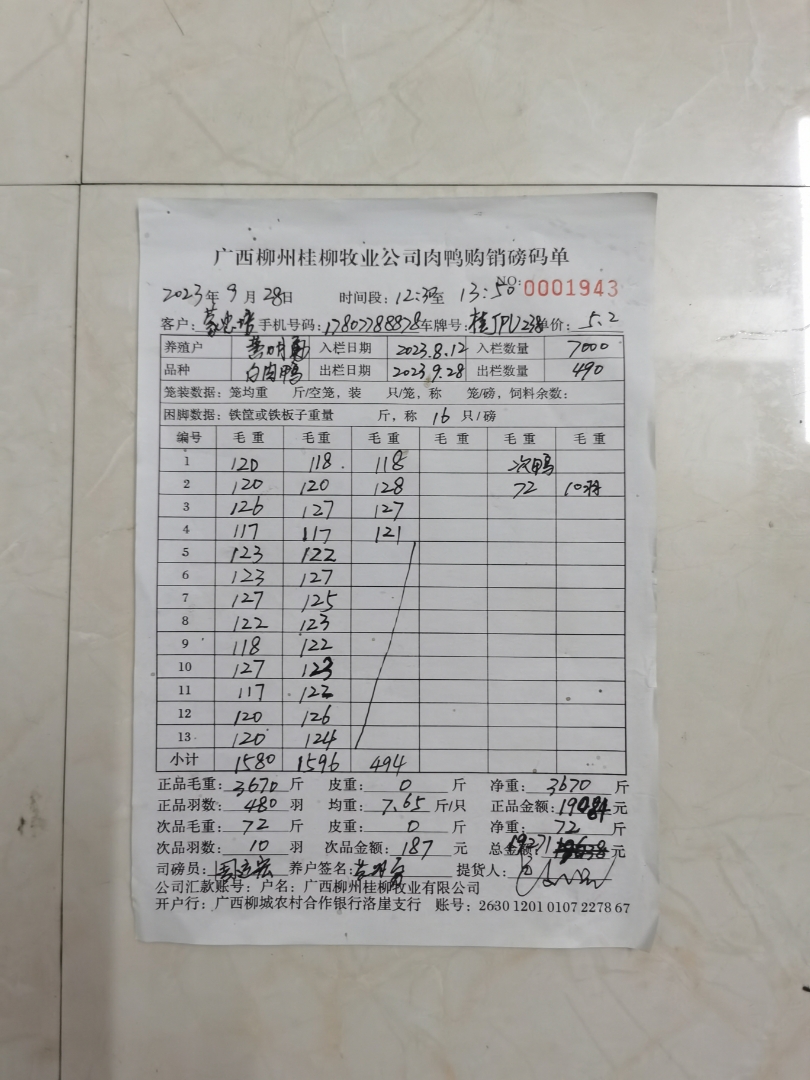 广西柳州桂柳牧业公司肉鸭购销磅码单
NO: 0001943
2023年9月28日 时间段: 12:30至 13:50
客户: 蒙忠培 手机号码: 17807788878 车牌号: 桂JPU238 单价: 5.2
养殖户 黄明 入栏日期 2023.8.12 入栏数量 7000
品种 白肉鸭 出栏日期 2023.9.28 出栏数量 490
笼装数据: 笼均重 斤/空笼, 装 只/笼, 称 笼/磅, 饲料余数:
困脚数据: 铁筐或铁板子重量 斤, 称 16 只/磅
编号 毛重 毛重 毛重 毛重 毛重 毛重
1 120 118 118 次鸭
2 120 120 128 72 10羽
3 126 127 127
4 117 117 121
5 123 122
6 123 127
7 127 125
8 122 123
9 118 122
10 127 123
11 117 122
12 120 126
13 120 124
小计 1580 1596 494
正品毛重: 3670 斤 皮重: 0 斤 净重: 3670 斤
正品羽数: 480 羽 均重: 7.65 斤/只 正品金额: 19084 元
次品毛重: 72 斤 皮重: 0 斤 净重: 72 斤
次品羽数: 10 羽 次品金额: 187 元 总金额: 19271 元
司磅员: 养户签名: 提货人:
公司汇款账号: 户名: 广西柳州桂柳牧业有限公司
开户行: 广西柳城农村合作银行洛崖支行 账号: 2630 1201 0107 2278 67